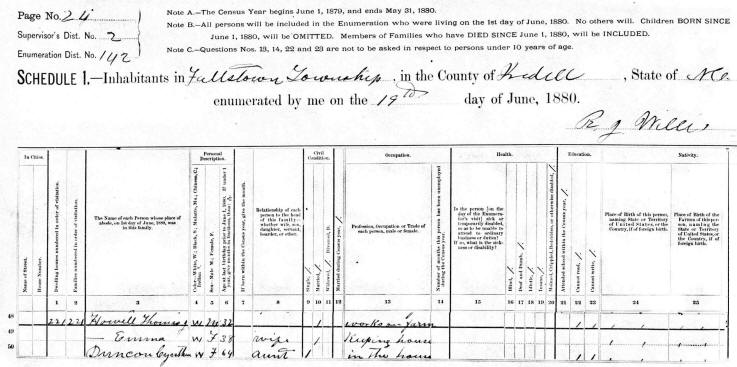 Page No. 24
Supervisor's Dist. No. 2
Enumeration Dist. No. 142
Note A.—The Census Year begins June 1, 1879, and ends May 31, 1880.
Note B.—All persons will be included in the Enumeration who were living on the 1st day of June, 1880. No others will. Children BORN SINCE
June 1, 1880, will be OMITTED. Members of Families who have DIED SINCE June 1, 1880, will be INCLUDED.
Note C.—Questions Nos. 13, 14, 22 and 23 are not to be asked in respect to persons under 10 years of age.
SCHEDULE 1.—Inhabitants in Fallstown Township, in the County of Iredell, State of N.C.
enumerated by me on the 19th day of June, 1880.
R J Willis
In Cities.
Personal Description.
Civil Condition.
Occupation.
Health.
Education.
Nativity.
Name of Street.
House Number.
Dwelling houses numbered in order of visitation.
Families numbered in order of visitation.
The Name of each Person whose place of abode, on 1st day of June, 1880, was in this family.
Relationship of each person to the head of this family—whether wife, son, daughter, servant, boarder, or other.
Single, /
Married, /
Married during Census year, /
Profession, Occupation or Trade of each person, male or female.
Number of months this person has been unemployed during the Census year.
Is the person [on the day of the Enumerator's visit] sick or temporarily disabled, so as to be unable to attend to ordinary business or duties? If so, what is the sickness or disability?
Blind, /
Deaf and Dumb, /
Idiotic, /
Insane, /
Attended school within the Census year, /
Cannot read, /
Cannot write, /
Place of Birth of this person, naming State or Territory of United States, or the Country, if of foreign birth.
Place of Birth of the FATHER of this person, naming the State or Territory of United States, or the Country, if of foreign birth.
1 2 3 4 5 6 7 8 9 10 11 12 13 14 15 16 17 18 19 20 21 22 23 24 25
48 221 221 Howell Thomas W M 32 / works on farm / /
49 — Emma W F 38 wife / Keeping house
50 Duncon Cynthia W F 64 aunt / in the house / /